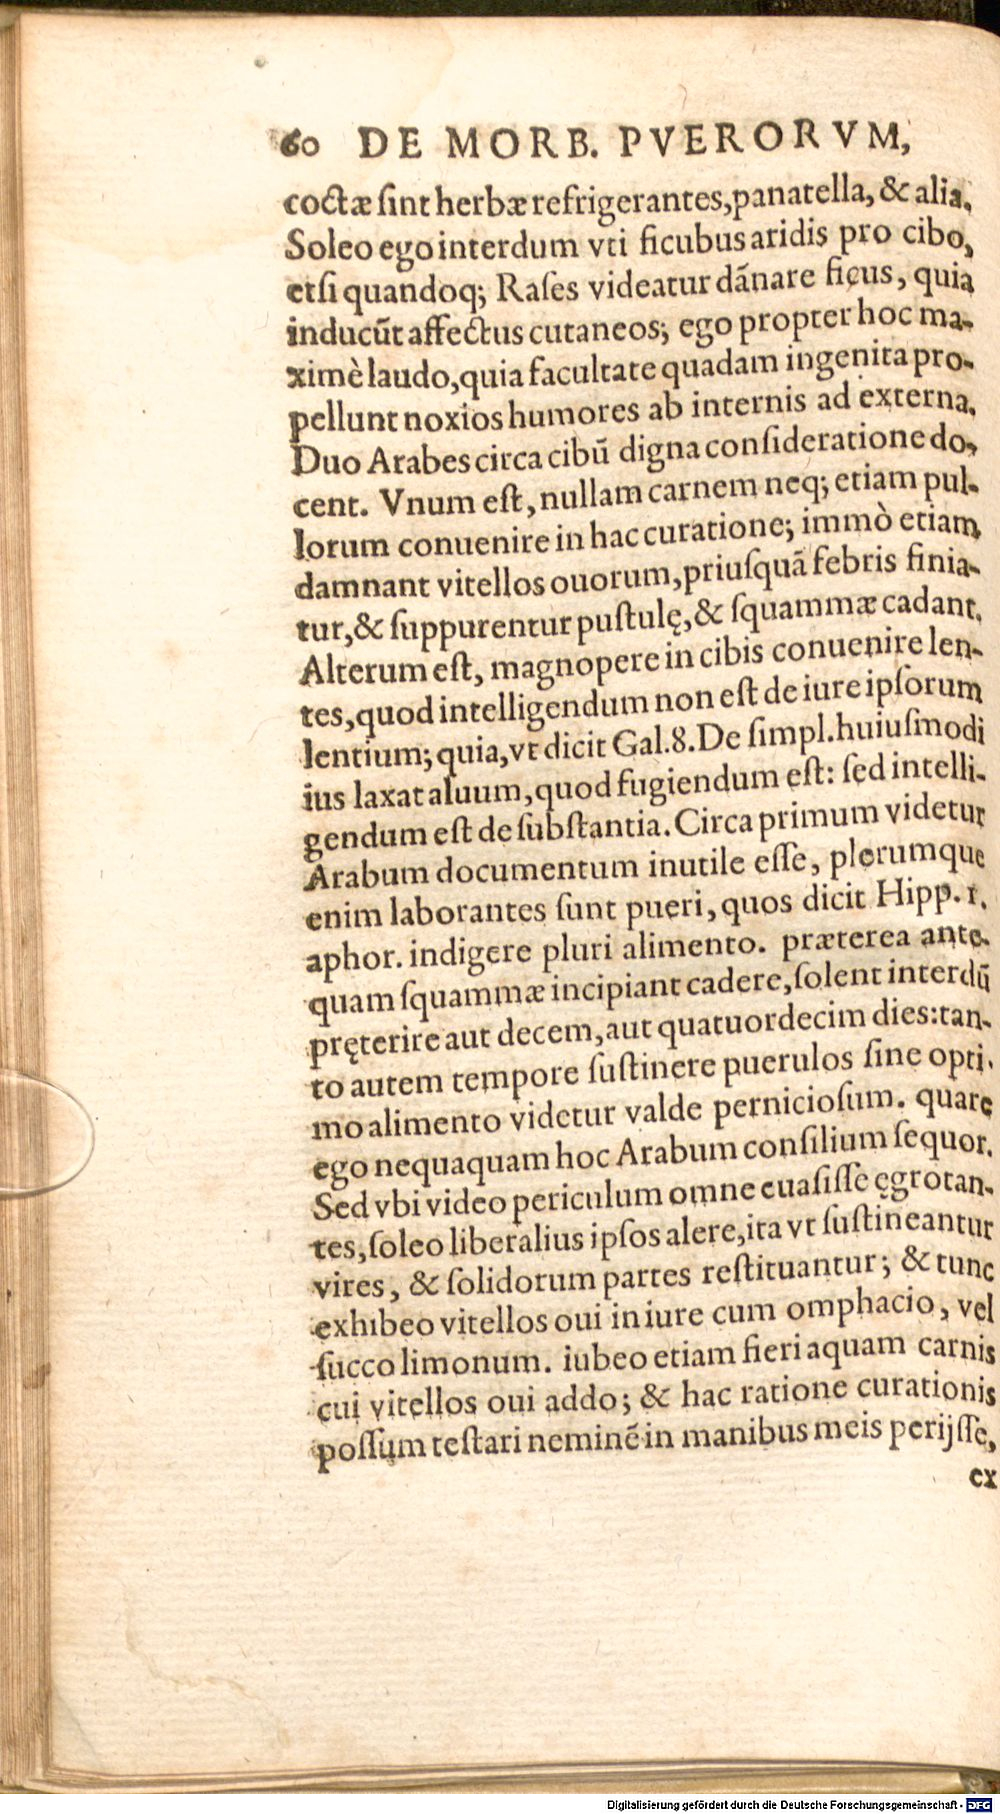 60 DE MORB. PVERORVM,
coctæ ſint herbæ refrigerantes,panatella, & alia.
Soleo ego interdum vti ficubus aridis pro cibo,
etſi quandoq; Raſes videatur dãnare ficus, quia
inducũt affectus cutaneos; ego propter hoc ma-
ximè laudo,quia facultate quadam ingenita pro-
pellunt noxios humores ab internis ad externa.
Duo Arabes circa cibũ digna conſideratione do,
cent. Vnum eſt, nullam carnem neq; etiam pul-
lorum conuenire in hac curatione; immò etiam
damnant vitellos ouorum,priuſquã febris finia-
tur,& ſuppurentur puſtulę,& ſquammæ cadant.
Alterum eſt, magnopere in cibis conuenire len-
tes,quod intelligendum non eſt de iure ipſorum
lentium; quia,vt dicit Gal.8.De ſimpl.huiuſmodi
ius laxat aluum,quod fugiendum eſt: ſed intelli-
gendum eſt de ſubſtantia. Circa primum videtur
Arabum documentum inutile eſſe, plerumque
enim laborantes ſunt pueri, quos dicit Hipp. 1.
aphor. indigere pluri alimento. præterea ante-
quam ſquammæ incipiant cadere,ſolent interdũ
pręterire aut decem,aut quatuordecim dies:tan-
to autem tempore ſuſtinere puerulos ſine opti-
mo alimento videtur valde pernicioſum. quare
ego nequaquam hoc Arabum conſilium ſequor.
Sed vbi video periculum omne euaſiſſe ęgrotan-
tes,ſoleo liberalius ipſos alere,ita vt ſuſtineantur
vires, & ſolidorum partes reſtituantur; & tunc
exhibeo vitellos oui in iure cum omphacio, vel
ſucco limonum. iubeo etiam fieri aquam carnis
cui vitellos oui addo; & hac ratione curationis
poſſum teſtari neminẽ in manibus meis perijſſe,
ex
Digitalisierung gefördert durch die Deutsche Forschungsgemeinschaft - DFG